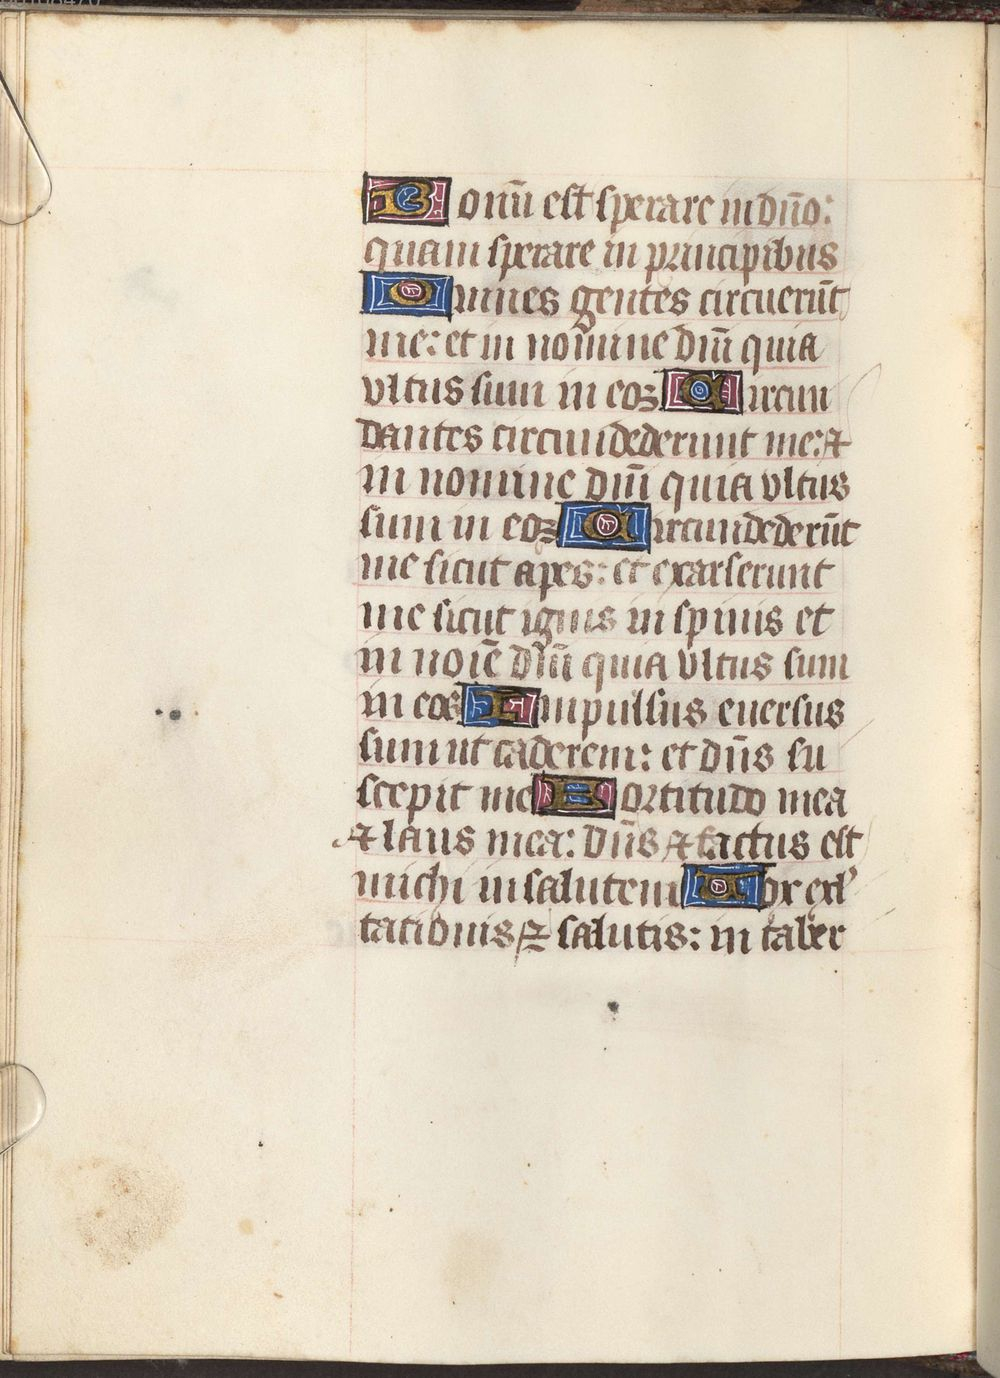 Bonū est sperare in dn̄o:
quam sperare in principibus
Omnes gentes circuerūt
me: et in nomine dn̄i quia
vltus sum in eos Circun
dantes circumdederunt me: et
in nomine dn̄i quia vltus
sum in eos Circundederūt
me sicut apes: et exarserunt
me sicut ignis in spinis et
in noīe dn̄i quia vltus sum
in eos Impulsus euersus
sum ut caderem: et dn̄s su
scepit me Fortitudo mea
et laus mea: dn̄s et factus est
michi in salutem Vox exl'
tationis et salutis: in taber